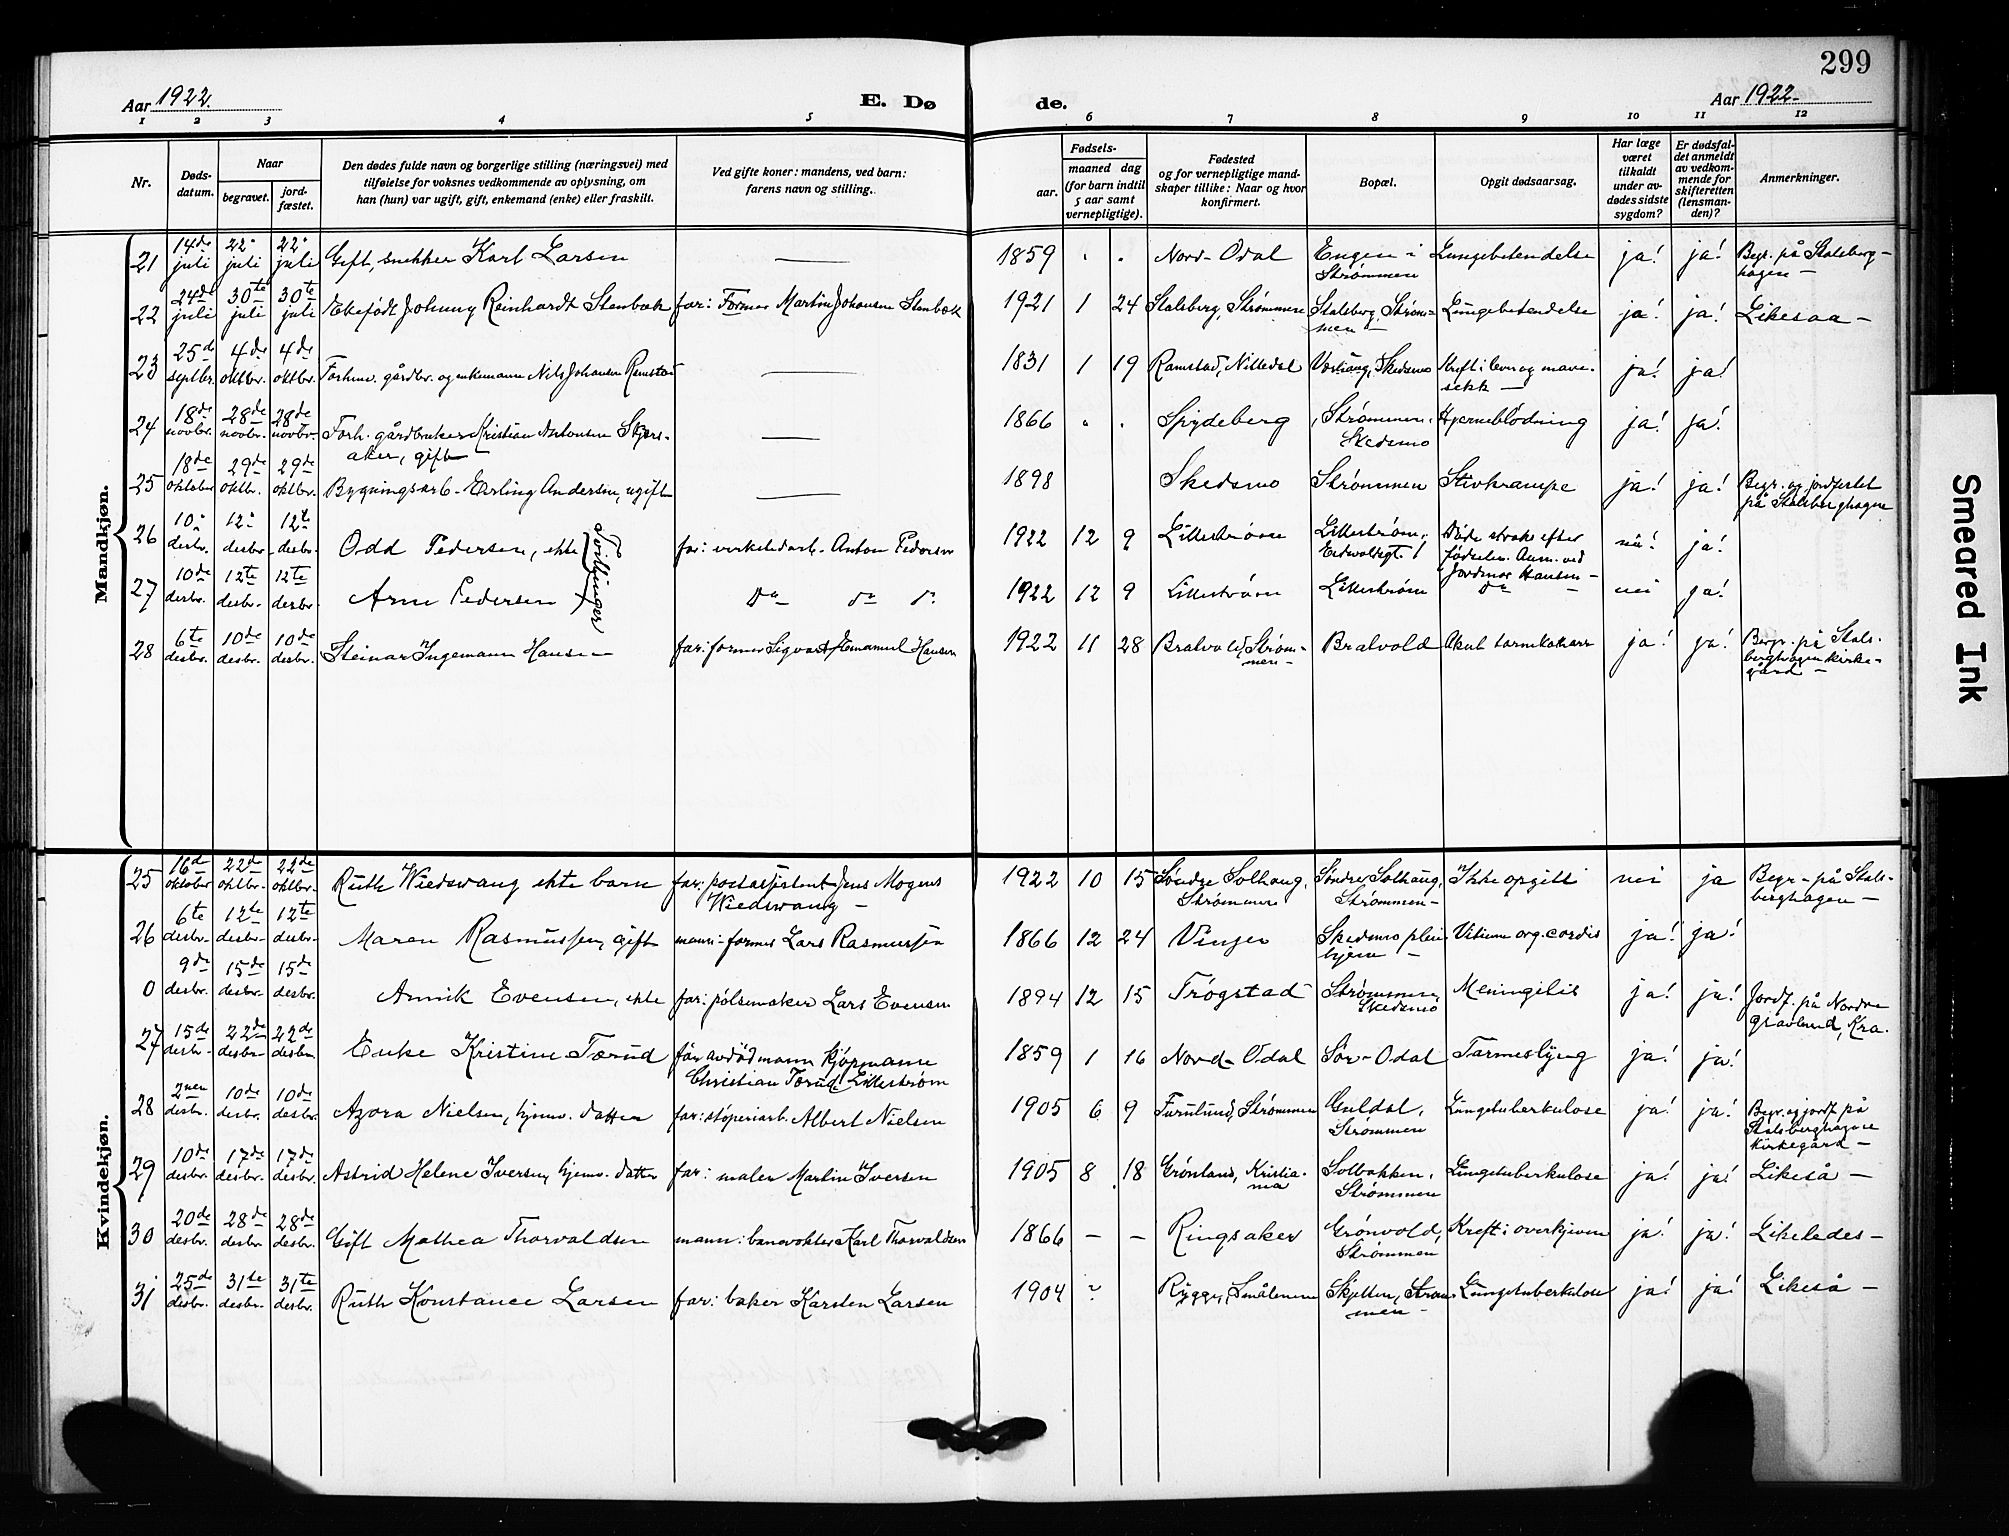 299
Aar 1922.
E. Dø
de.
Aar 1922.
1 2 3 4 5 6 7 8 9 10 11 12
Nr.
Døds-
datum.
Naar
begravet.
jord-
fæstet.
Den dødes fulde navn og borgerlige stilling (næringsvei) med
tilføielse for voksnes vedkommende av oplysning, om
han (hun) var ugift, gift, enkemand (enke) eller fraskilt.
Ved gifte koner: mandens, ved barn:
farens navn og stilling.
Fødsels-
aar.
maaned dag
(for barn indtil
5 aar samt
vernepligtige).
Fødested
og for vernepligtige mand-
skaper tillike: Naar og hvor
konfirmert.
Bopæl.
Opgit dødsaarsag.
Har læge
været
tilkaldt
under av-
dødes sidste
sygdom?
Er dødsfal-
det anmeldt
av vedkom-
mende for
skifteretten
(lensman-
den)?
Anmerkninger.
Mandkjøn.
21 14de juli 22. juli 22. juli Gift, snekker Karl Larsen — 1859 " " Nord-Odal Engen i Strømmen Lungebetendelse ja! ja! Begr. på Stalsberg-
hagen —
22 24de juli 30te juli 30te juli Ektefødt Johnny Reinhardt Stenbæk far: Former Martin Johansen Stenbæk 1921 1 24 Stalsberg, Strømmen Stalsberg, Strøm-
men Lungebetendelse ja! ja! Likesaa —
23 25de septbr. 4de oktbr. 4de oktbr. Forhnv. gårdbr. og enkemann Nils Johansen Ramstad — 1831 1 19 Ramstad, Nittedal Skedsmo Kreft i lever og mave-
sekk — ja! ja!
24 18de novbr. 28de novbr. 28de novbr. Forh. gårdbruker Kristian Antonsen
aker, gift — 1866 " " Spydeberg Strømmen, Skedsmo Hjerneblødning ja! ja!
25 18de oktober 29de oktbr. 29de oktbr. Bygningsarb. Erling Andersen, ugift — 1898 Skedsmo Strømmen Stivkrampe ja! ja! Begr. og jordfestet
på Stalsberghagen
26 10. desbr. 12. desbr. 12te desbr. Odd Pedersen, ekte Tvillinger far: verkstedarb. Anton Pedersen 1922 12 9 Lillestrøm Lillestrøm, Eidsvoldsgt. 1 Døde straks efter
fødselen. Anm. ved
Jordmor Hansen — nei! ja!
27 10de desbr. 12te desbr. 12te desbr. Arne Pedersen do do do 1922 12 9 Lillestrøm Lillestrøm do — nei ja!
28 6te desbr. 10de desbr. 10de desbr. Steinar Ingemann Hansen far: former Sigvart Emanuel Hansen 1922 11 28 Bratvold, Strøm-
men — Bratvold Akut tarmkatarr ja! ja! Begr. på Stals-
berghagen kirke-
gård —
Kvindekjøn.
25 16de oktober 22de oktbr. 22de oktbr. Ruth Wiedswang ekte barn far: postassistent Jens Mogens
Wiedswang — 1922 10 15 Søndre Solhaug,
Strømmen Søndre Solhaug,
Strømmen — Ikke opgitt nei ja Begr. på Stals-
berghagen —
26 6te desbr. 12te desbr. 12te desbr. Maren Rasmussen, gift mann: former Lars Rasmussen 1866 12 24 Vinger Skedsmo plei
hjem — Vitium org. cordis ja! ja!
0 9de desbr. 15de desbr. 15de desbr. Annik Evensen, ekte far: pølsemaker Lars Evensen 1894 12 15 Trøgstad Strømmen, Skedsmo Meningitis ja! ja! Jordf. på Nordre
gravlund, Kra.
27 15de desbr. 22de desbr. 22de desbr. Enke Kristine Tærud før avdød mann kjøpmann
Christian Tærud, Lillestrøm 1859 1 16 Nord-Odal Sør-Odal Tarmeslyng ja! ja!
28 2nen desbr. 10de desbr. 10de desbr. Azora Nielsen, hjemv. datter far: støperiarb. Albert Nielsen 1905 6 9 Furulund, Strømmen Guldal, Strømmen Lungetuberkulose ja! ja! Begr. og jordf. på
Stalsberghagene
kirkegård —
29 10de desbr. 17de desbr. 17de desbr. Astrid Helene Iversen, hjemv. datter far: maler Martin Iversen 1905 8 18 Grønland, Kristia-
nia Solbakken, Strømmen Lungetuberkulose ja! ja! Likeså —
30 20de desbr. 28de desbr. 28de desbr. Gift Mathea Thorvaldsen mann: banevokter Karl Thorvaldsen 1866 — — Ringsaker Grønvold, Strømmen Kreft i ja! ja! Likeledes —
31 25de desbr. 31te desbr. 31te desbr. Ruth Konstance Larsen far: baker Karsten Larsen 1904 ? Rygge, Smålenene Skjetten, Strøm-
men — Lungetuberkulose ja! ja! Likeså —
Smeared Ink